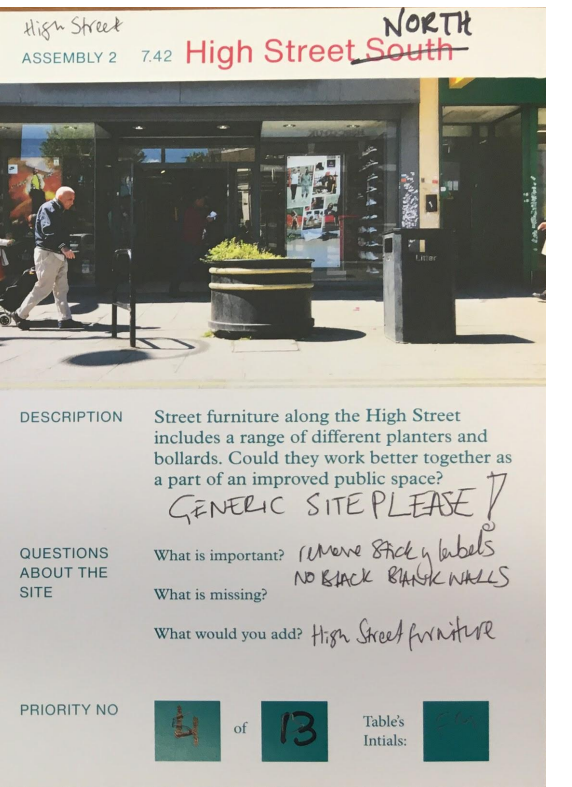 High Street
NORTH
ASSEMBLY 2 7.42 High Street South
Litter
DESCRIPTION Street furniture along the High Street
includes a range of different planters and
bollards. Could they work better together as
a part of an improved public space?
GENERIC SITE PLEASE!
QUESTIONS What is important? remove sticky labels
ABOUT THE NO BLACK BLANK WALLS
SITE What is missing?
What would you add? High Street furniture
PRIORITY NO 4 of 13 Table's
Intials: